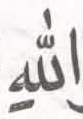 اللهِ